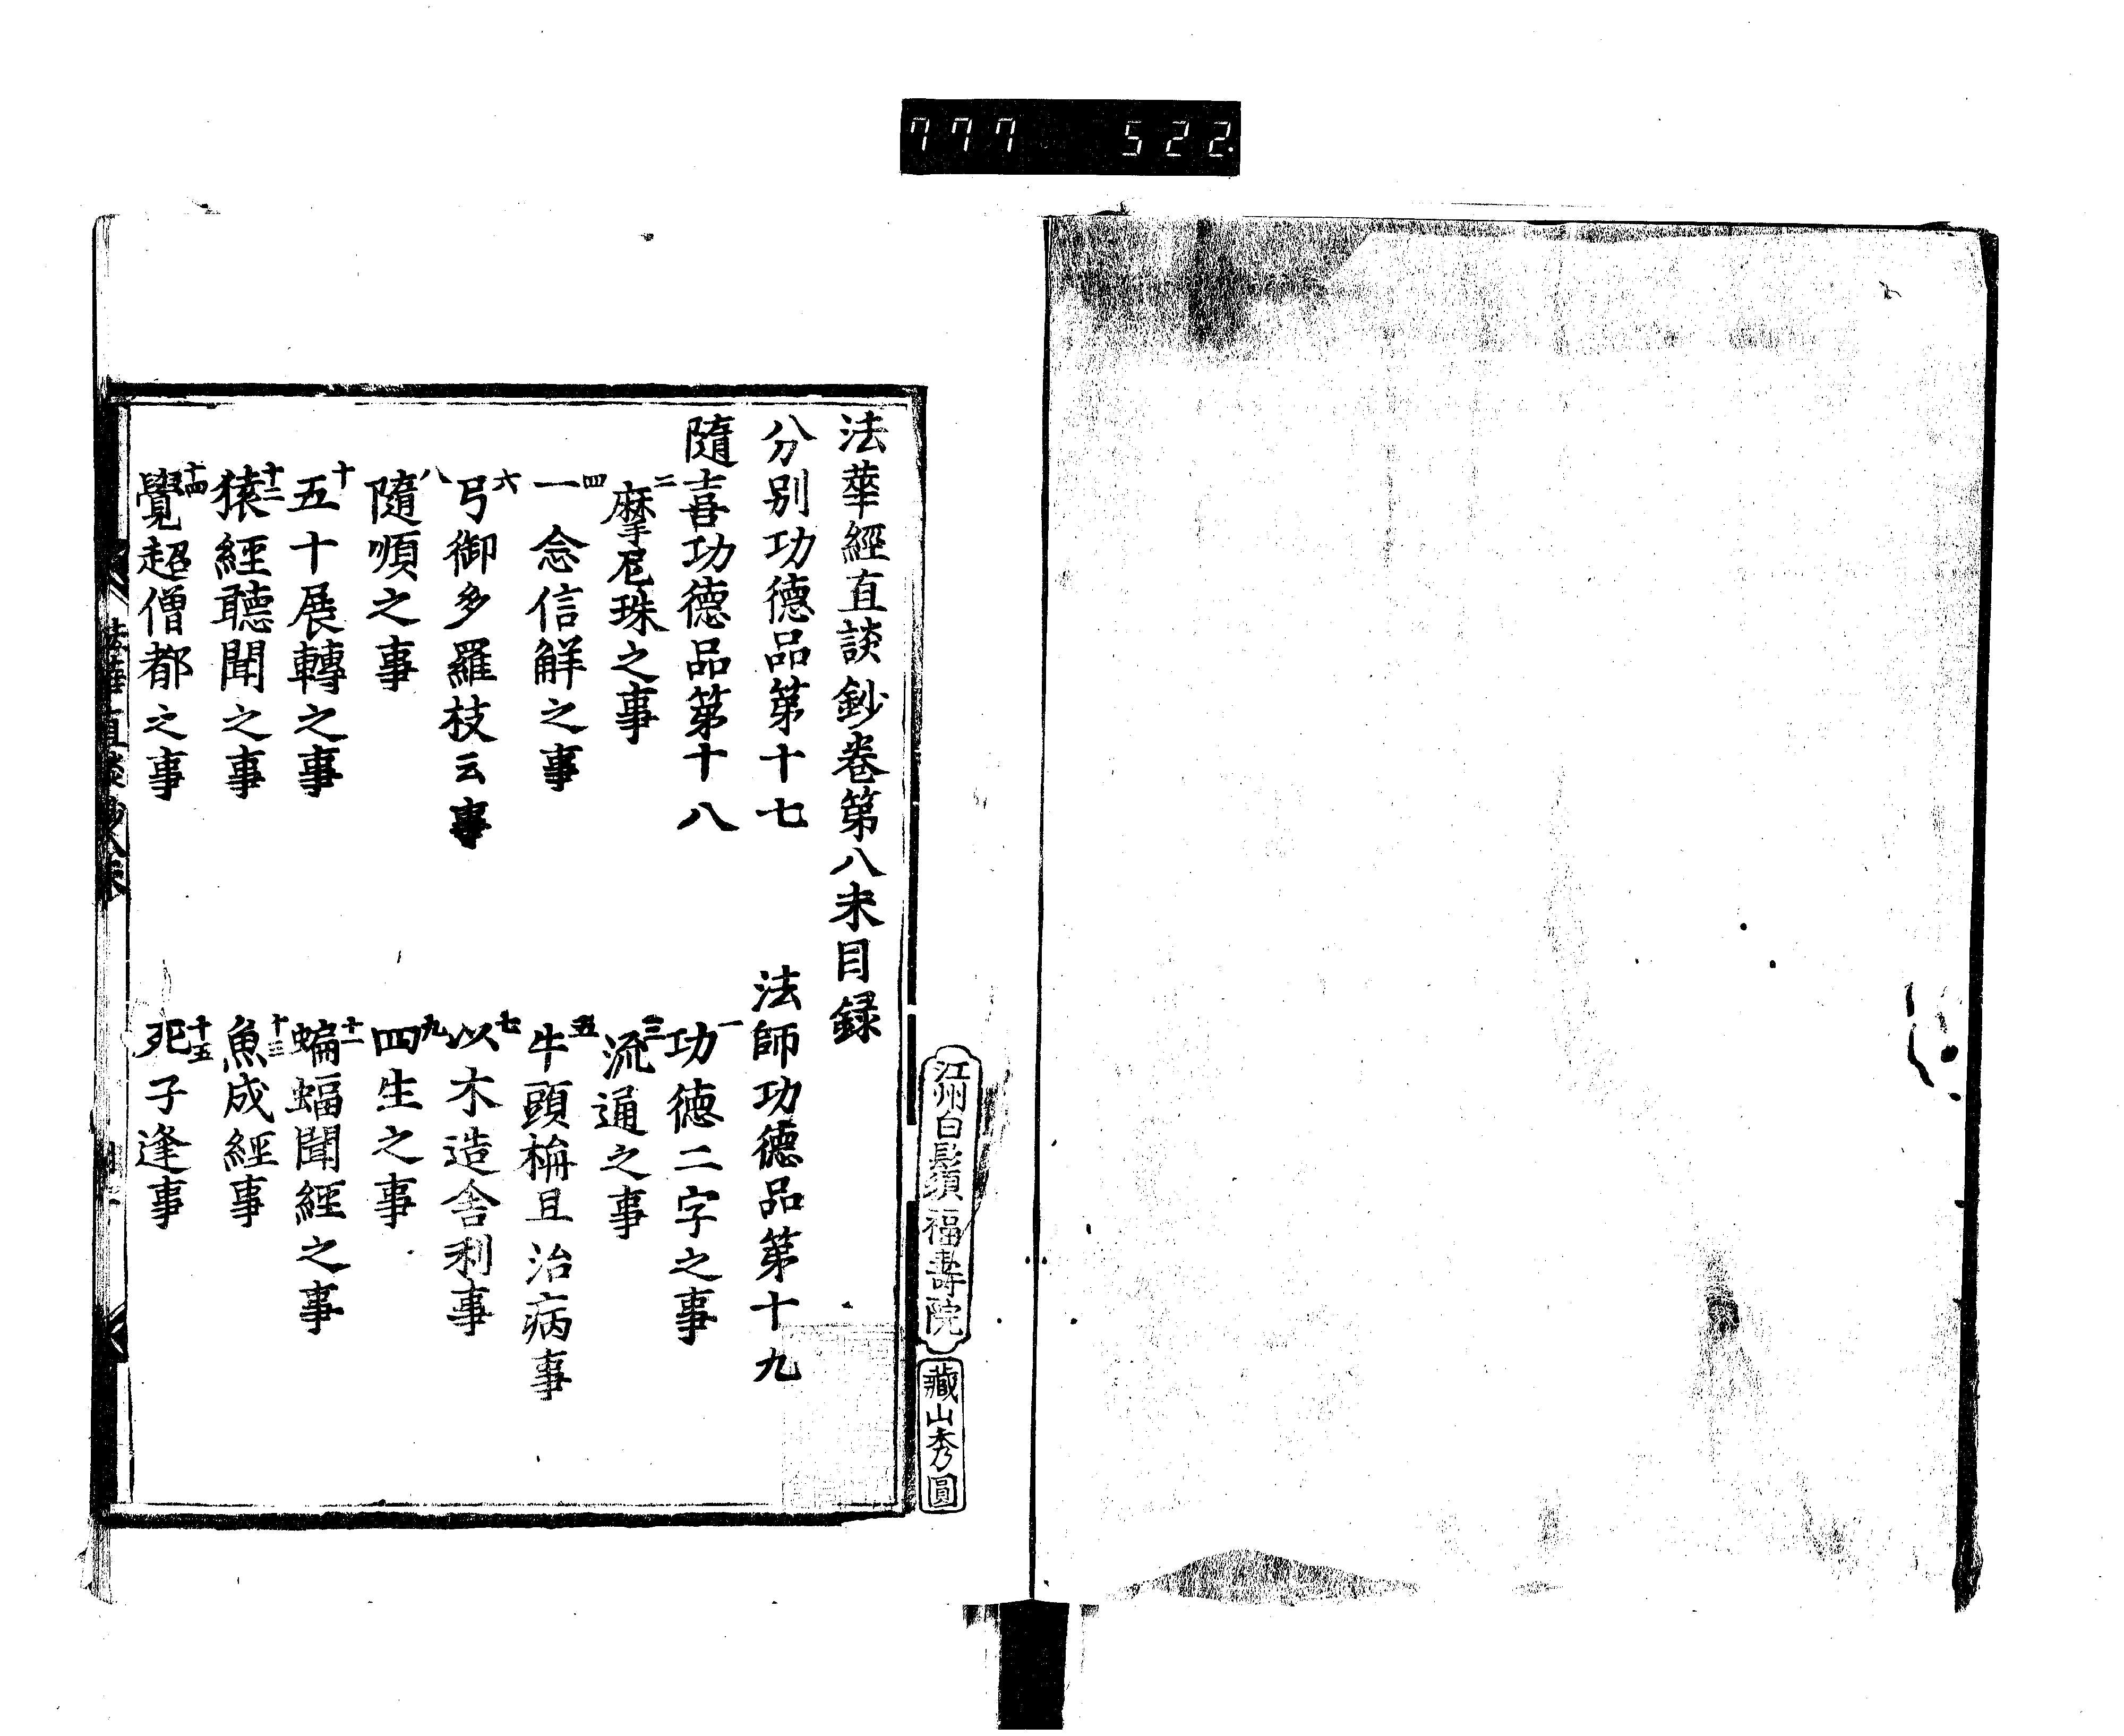 777 522
江州白鬚須福壽院
藏山秀圓
法華經直談鈔卷第八末目録
分別功德品第十七 法師功德品第十九
隨喜功德品第十八 一功德二字之事
二摩尼珠之事 三流通之事
四一念信解之事 五牛頭栴且治病事
六弓御多羅枝云事 七以木造舍利事
八隨順之事 九四生之事
十五十展轉之事 十一蝙蝠聞經之事
十二猿經聽聞之事 十三魚成經事
十四覺超僧都之事 十五死子逢事